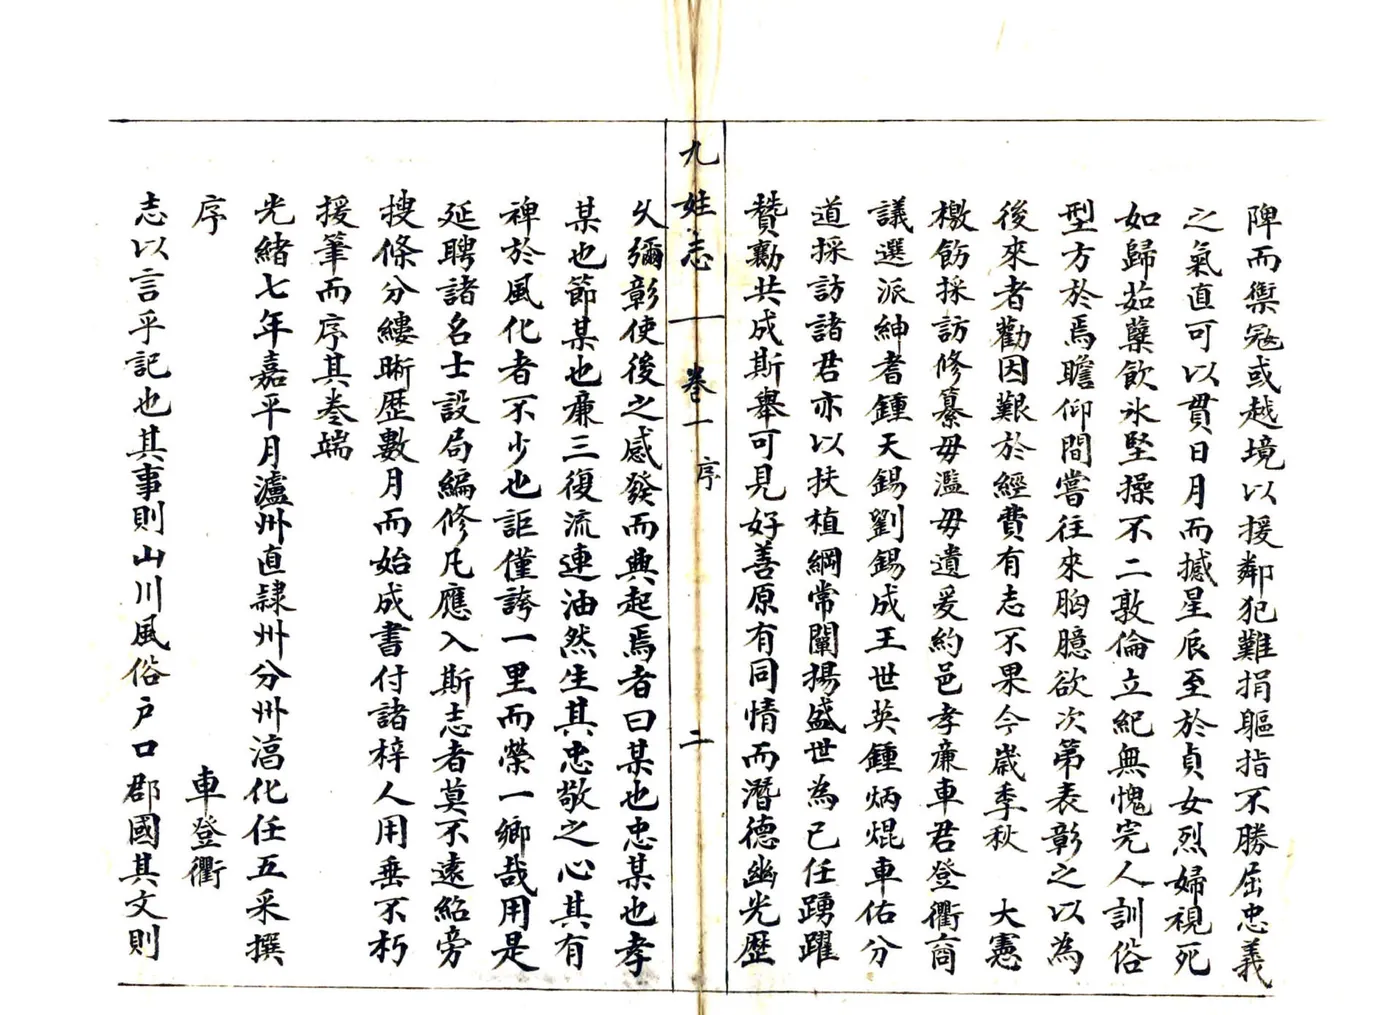 陴而禦寇或越境以援鄰犯難捐軀指不勝屈忠義
之氣直可以貫日月而撼星辰至於貞女烈婦視死
如歸茹蘗飲氷堅操不二敦倫立紀無愧完人訓俗
型方於焉瞻仰間嘗往來胸臆欲次第表彰之以為
後來者勸因艱於經費有志不果今歲季秋 大憲
檄飭採訪修纂毋濫毋遺爰約邑孝廉車君登衢商
議選派紳耆鍾天錫劉錫成王世英鍾炳焜車佑分
道採訪諸君亦以扶植綱常闡揚盛世為己任踴躍
贊勷共成斯舉可見好善原有同情而潛德幽光歷
九姓志 卷一 序 二
久彌彰使後之感發而興起焉者曰某也忠某也孝
某也節某也廉三復流連油然生其忠敬之心其有
裨於風化者不少也詎僅誇一里而榮一鄉哉用是
延聘諸名士設局編修凡應入斯志者莫不遠紹旁
搜條分縷晰歷數月而始成書付諸梓人用垂不朽
援筆而序其卷端
光緒七年嘉平月瀘州直隸州分州滈化任五采撰
序 車登衢
志以言乎記也其事則山川風俗户口郡國其文則